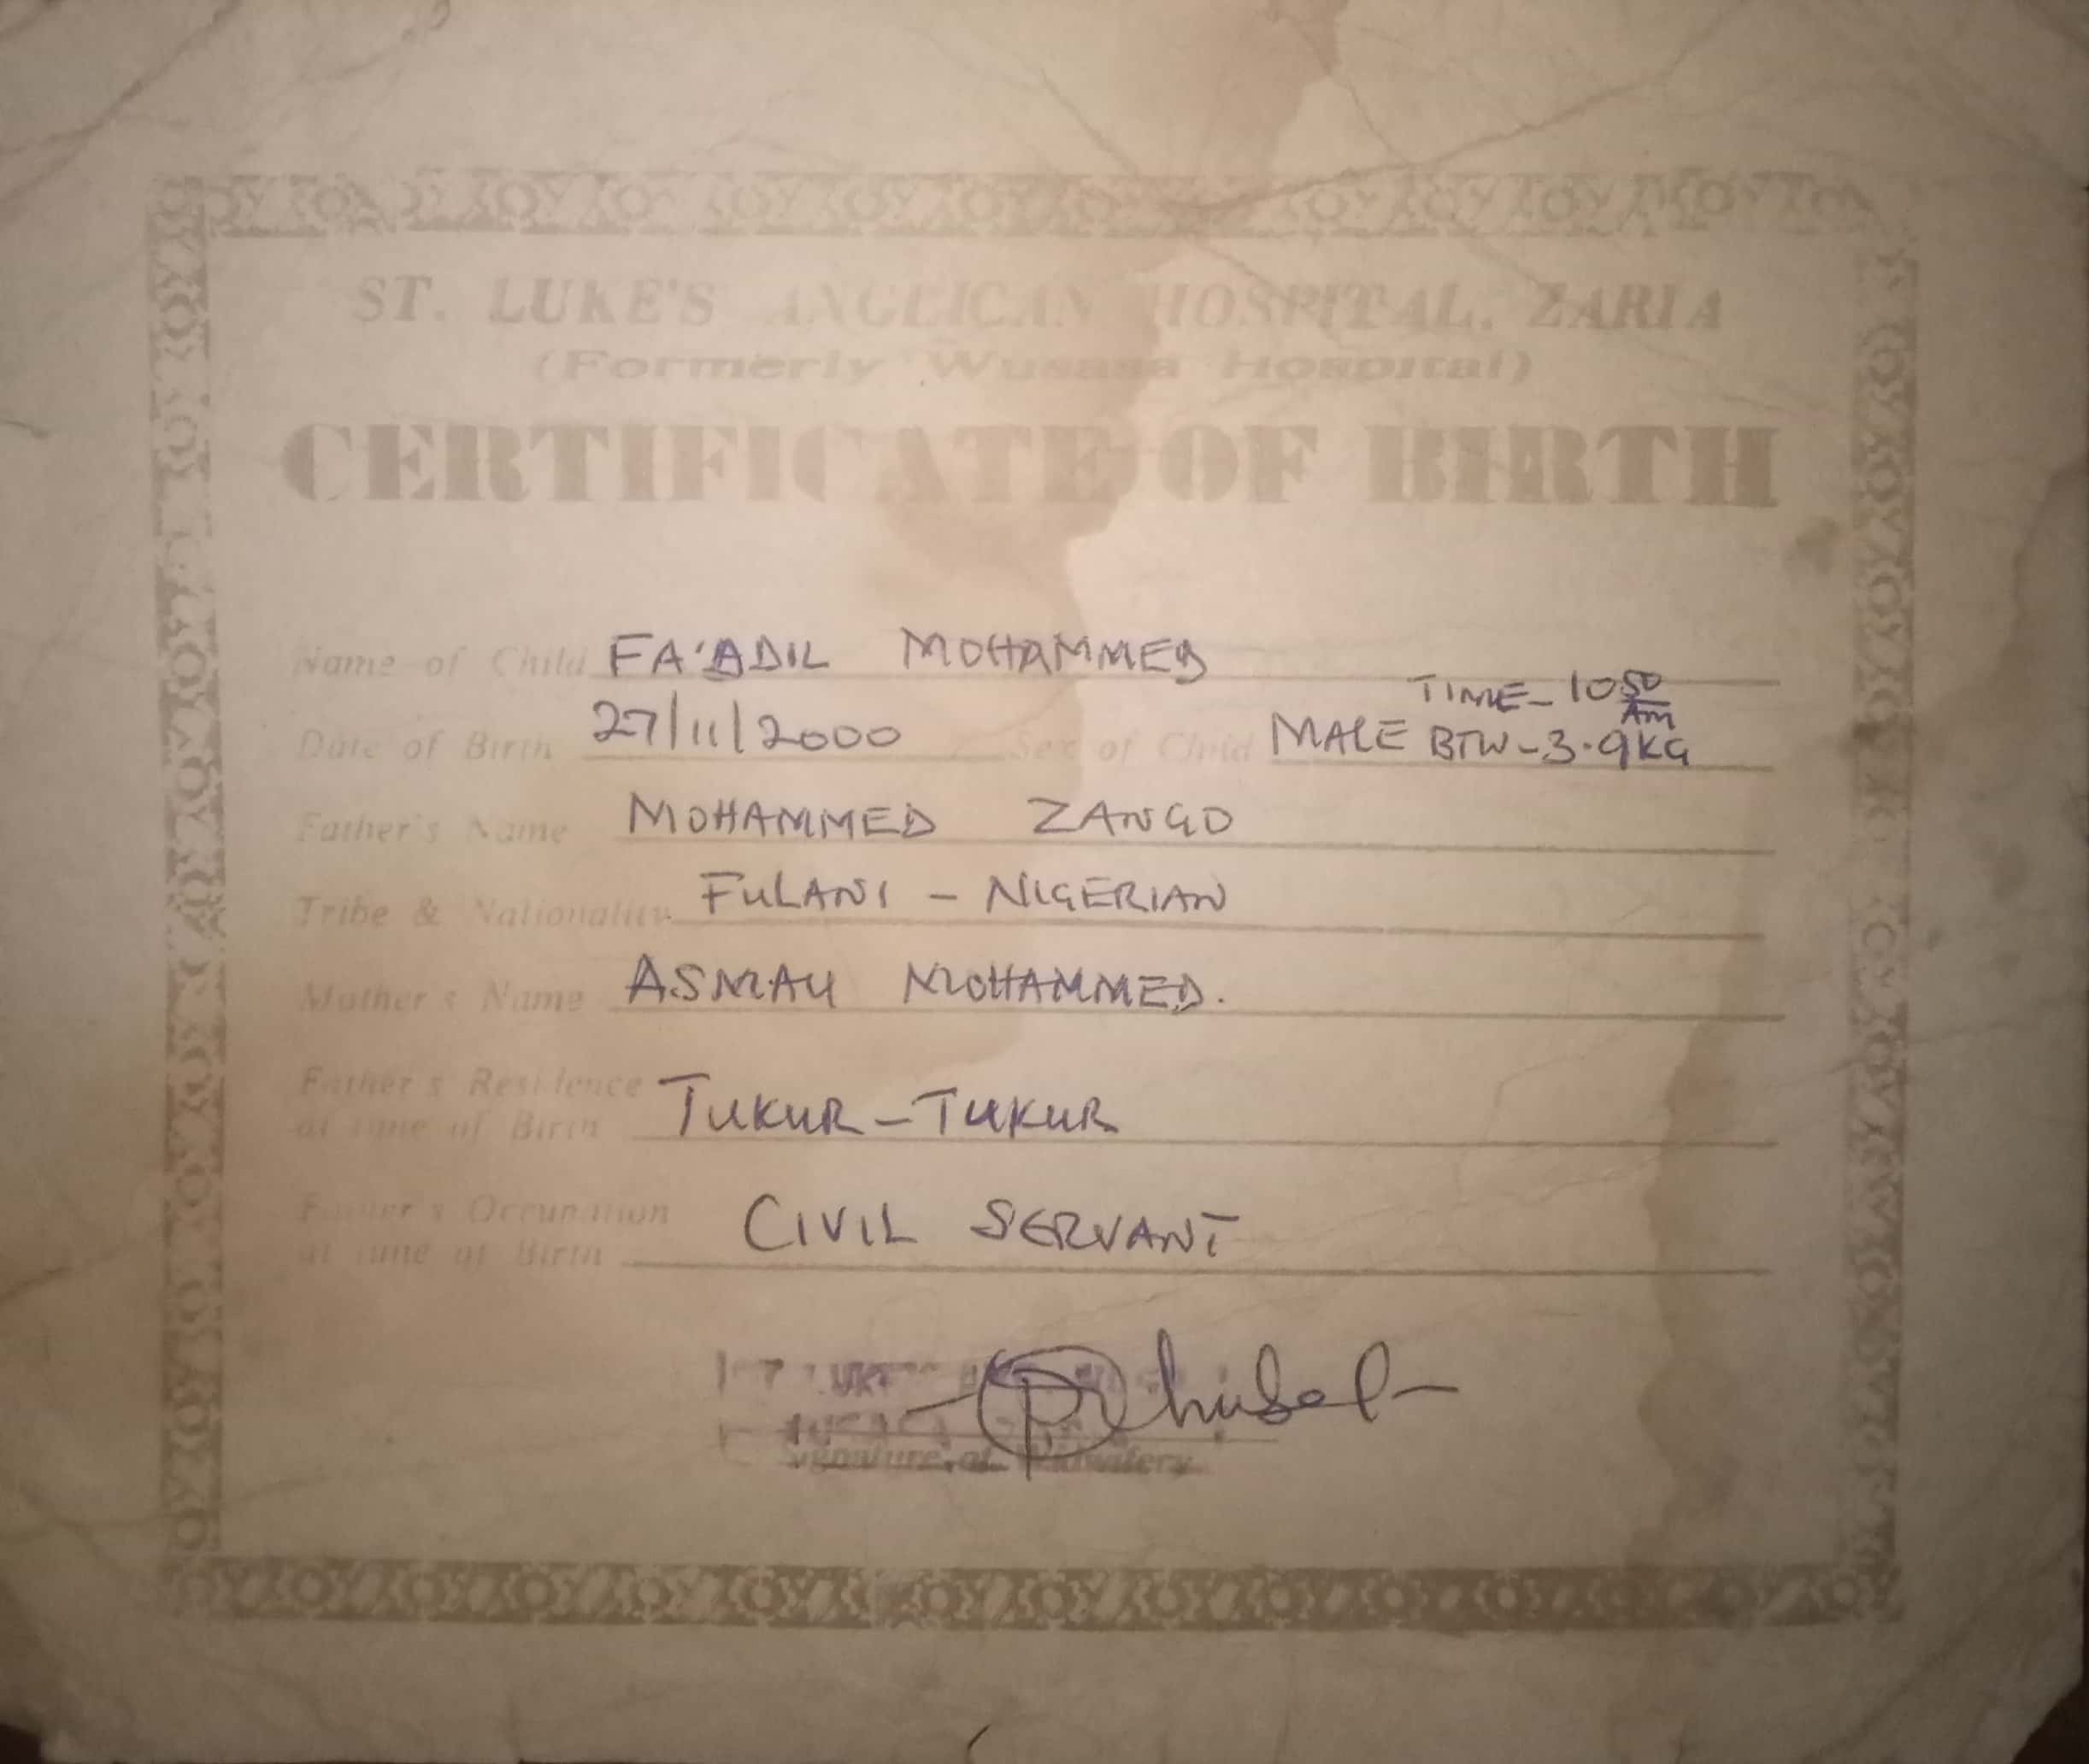 ST. LUKE'S ANGLICAN HOSPITAL, ZARIA
(Formerly Wusasa Hospital)
CERTIFICATE OF BIRTH
Name of Child FA'ADIL MOHAMMED
TIME - 10 50 AM
Date of Birth 27/11/2000 Sex of Child MALE BTW - 3.9KG
Father's Name MOHAMMED ZANGO
Tribe & Nationality FULANI - NIGERIAN
Mother's Name ASMAU MOHAMMED.
Father's Residence
at time of Birth TUKUR - TUKUR
Father's Occupation
at time of Birth CIVIL SERVANT
Signature of Midwifery